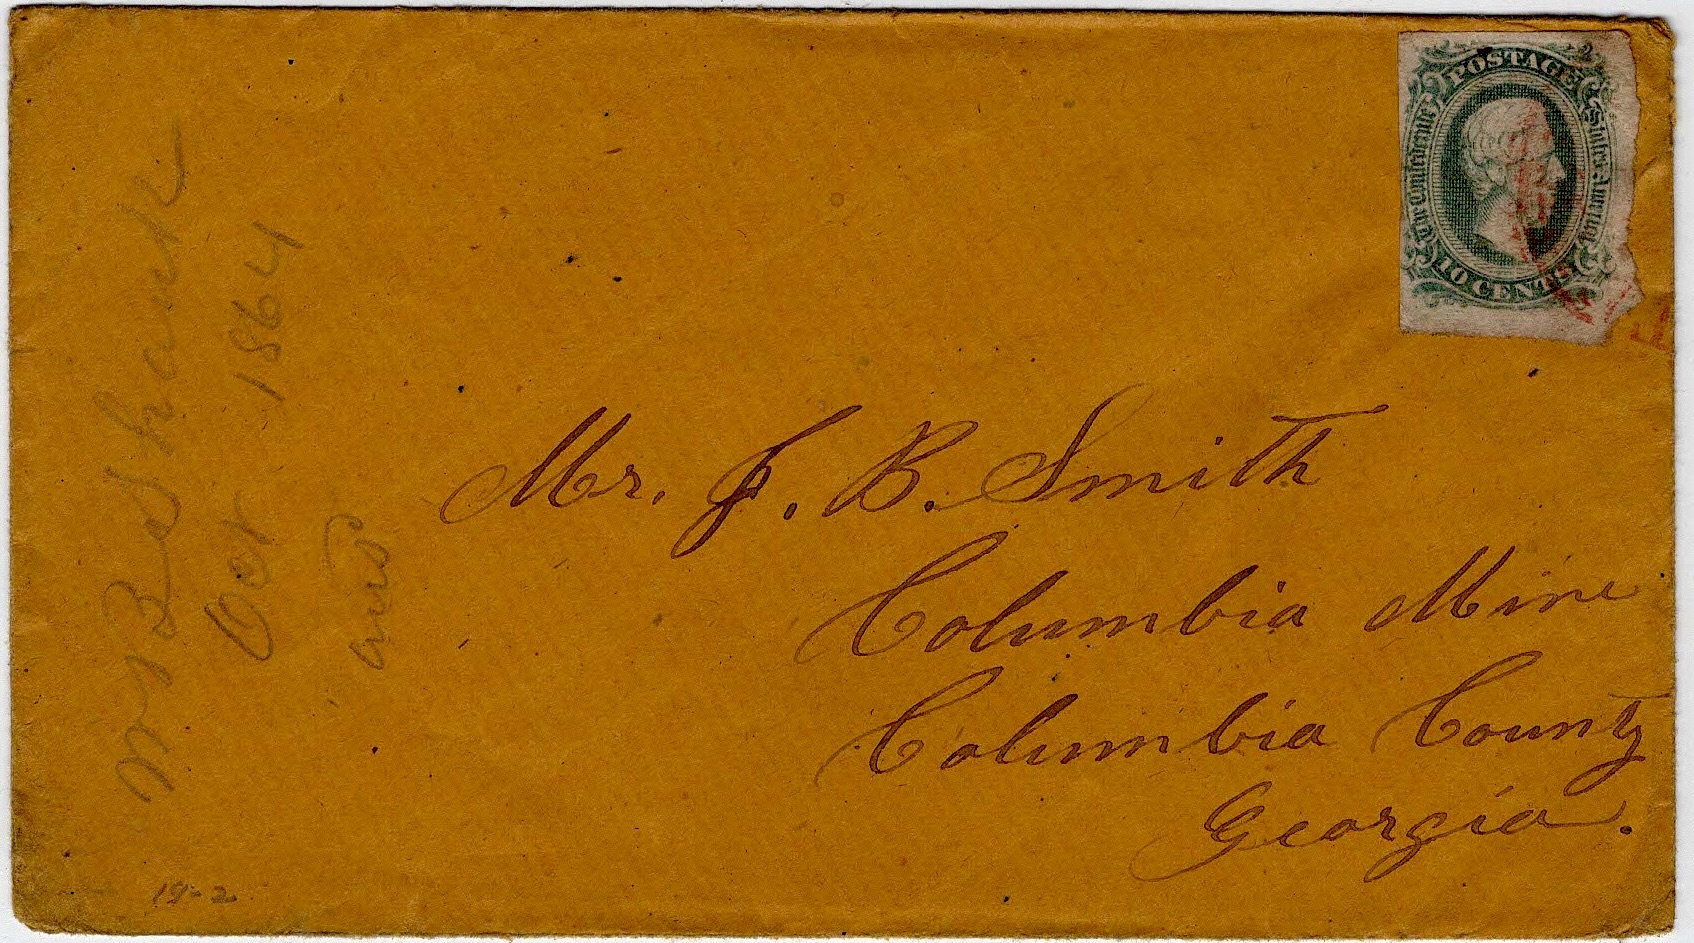 POSTAGE
The Confederate States of America
10 CENTS
Mr. J. B. Smith
Columbia Mine
Columbia County
Georgia.
Oct 1864
ans